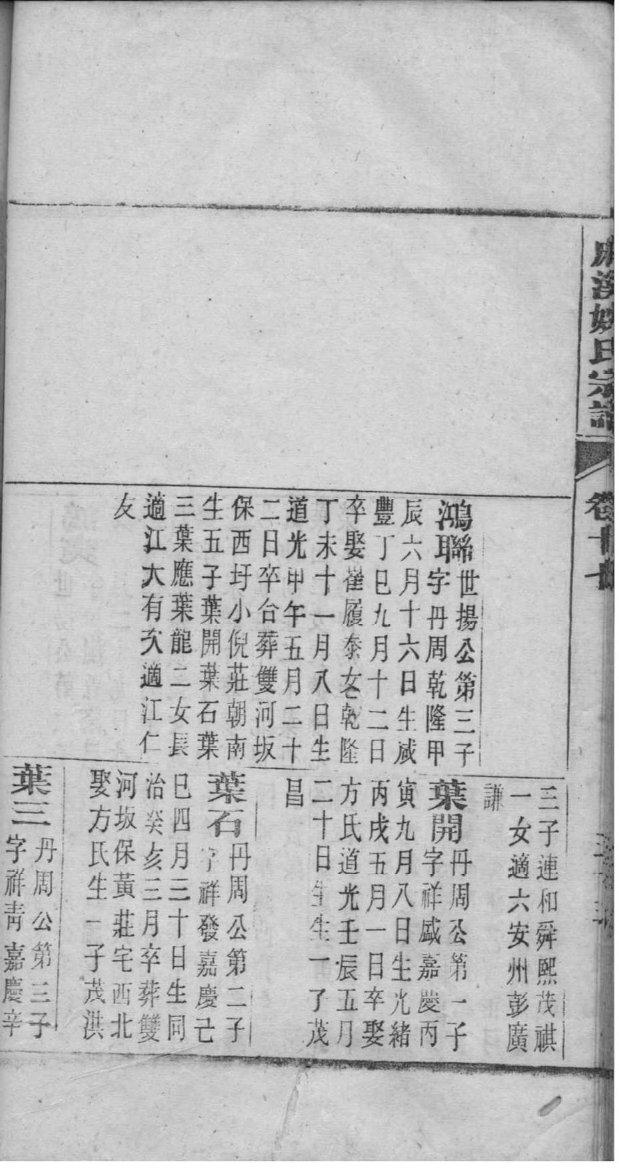 麻溪姚氏宗譜
卷十七
鴻聯
世揚公第三子
字丹周乾隆甲
辰六月十六日生咸
豐丁巳九月十二日
卒娶崔履泰女乾隆
丁未十一月八日生
道光甲午五月二十
二日卒合葬雙河坂
保西圩小倪莊朝南
生五子葉開葉石葉
三葉應葉龍二女長
適江大有次適江仁
友
三子連和舜熙茂祺
一女適六安州彭廣
謙
葉開
丹周公第一子
字祥盛嘉慶丙
寅九月八日生光緒
丙戌五月一日卒娶
方氏道光壬辰五月
二十日生生一子茂
昌
葉石
丹周公第二子
字祥發嘉慶己
巳四月三十日生同
治癸亥三月卒葬雙
河坂保黃莊宅西北
娶方氏生一子茂洪
葉三
丹周公第三子
字祥青嘉慶辛